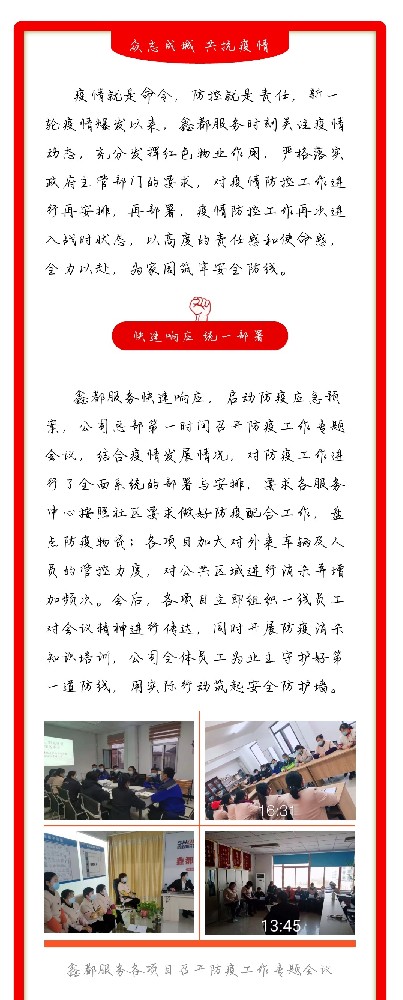 众志成城 共抗疫情
疫情就是命令，防控就是责任，新一
轮疫情爆发以来，鑫都服务时刻关注疫情
动态，充分发挥红色物业作用，严格落实
政府主管部门的要求，对疫情防控工作进
行再安排，再部署，疫情防控工作再次进
入战时状态，以高度的责任感和使命感，
全力以赴，为家园筑牢安全防线。
快速响应 统一部署
鑫都服务快速响应，启动防疫应急预
案，公司总部第一时间召开防疫工作专题
会议，综合疫情发展情况，对防疫工作进
行了全面系统的部署与安排，要求各服务
中心按照社区要求做好防疫配合工作，盘
点防疫物资；各项目加大对外来车辆及人
员的管控力度，对公共区域进行消杀并增
加频次。会后，各项目立即组织一线员工
对会议精神进行传达，同时开展防疫消杀
知识培训，公司全体员工为业主守护好第
一道防线，用实际行动筑起安全防护墙。
16:31
13:45
鑫都服务各项目召开防疫工作专题会议